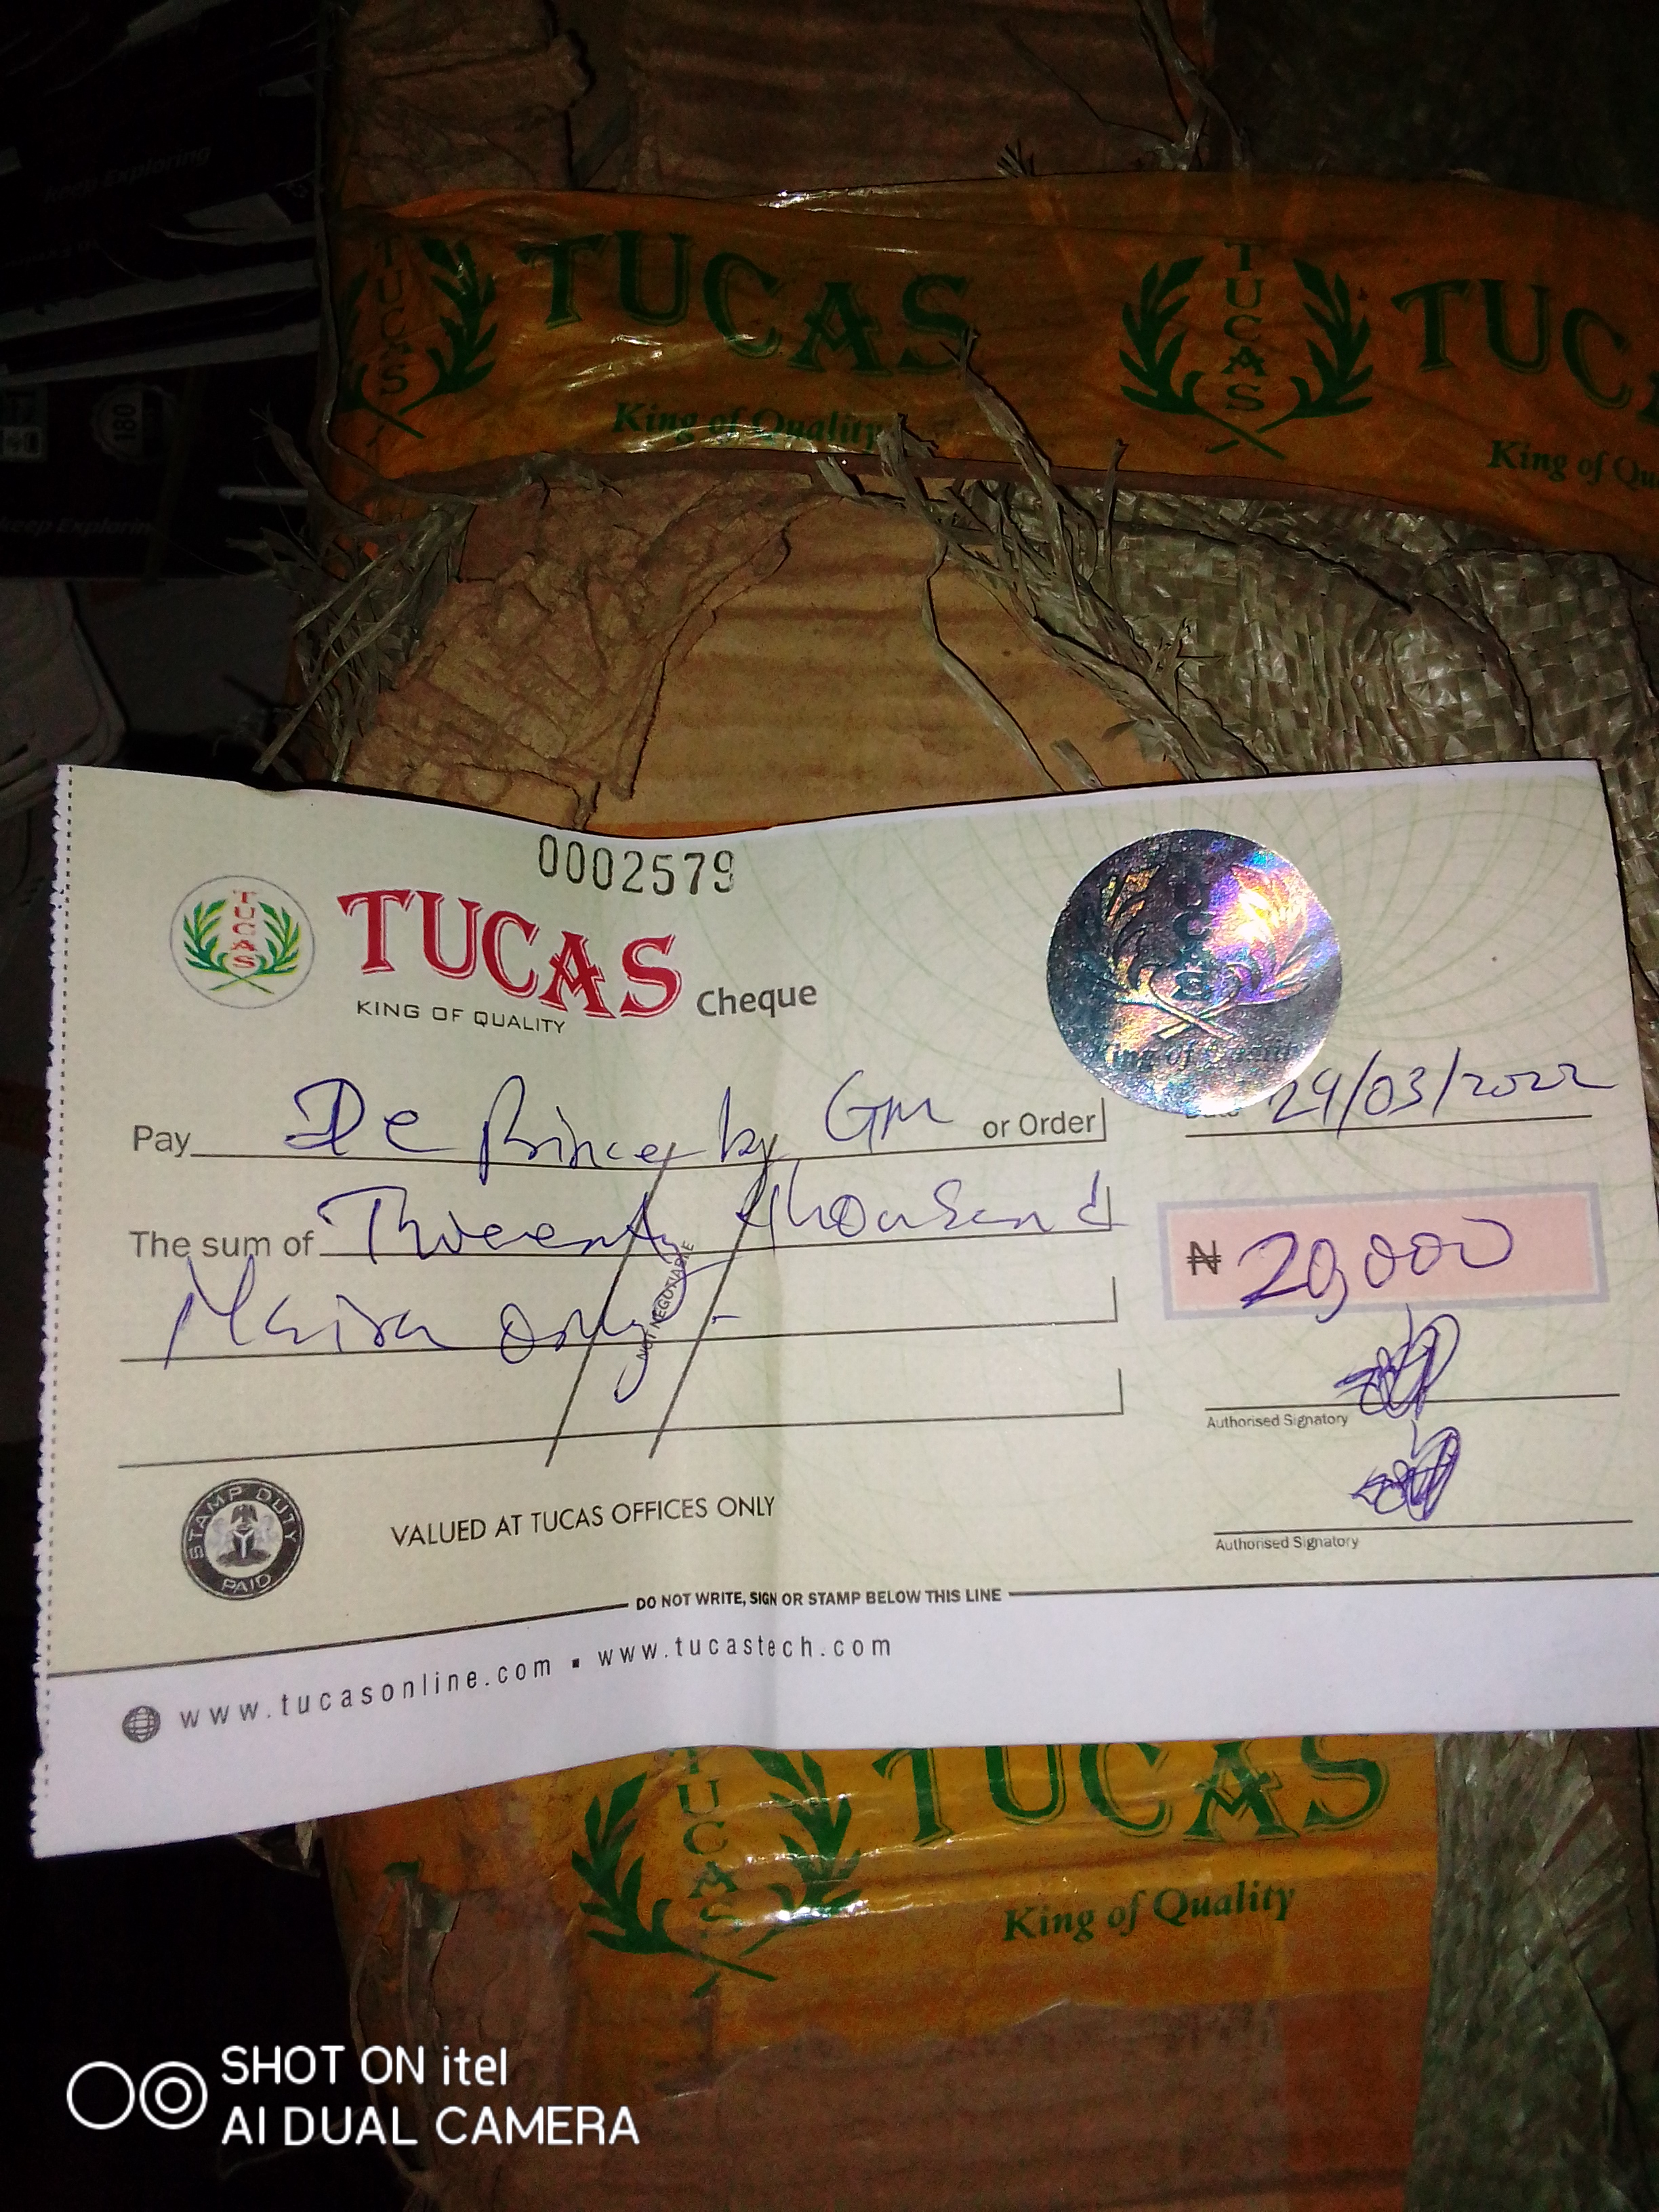 keep Exploring
TUCAS
TUCAS
TUCAS
TUC
King of Quality
King of Qu
180
keep Explorin
0002579
TUCAS
TUCAS Cheque
KING OF QUALITY
King of Quality
Pay De Prince by GM or Order
Date 29/03/2022
The sum of Tweenty thousand
₦ 20,000
Naira only -
NOT NEGOTIABLE
Authorised Signatory
Authorised Signatory
STAMP DUTY
PAID
VALUED AT TUCAS OFFICES ONLY
DO NOT WRITE, SIGN OR STAMP BELOW THIS LINE
www.tucasonline.com ▪ www.tucastech.com
TUCAS
TUCAS
King of Quality
SHOT ON itel
AI DUAL CAMERA